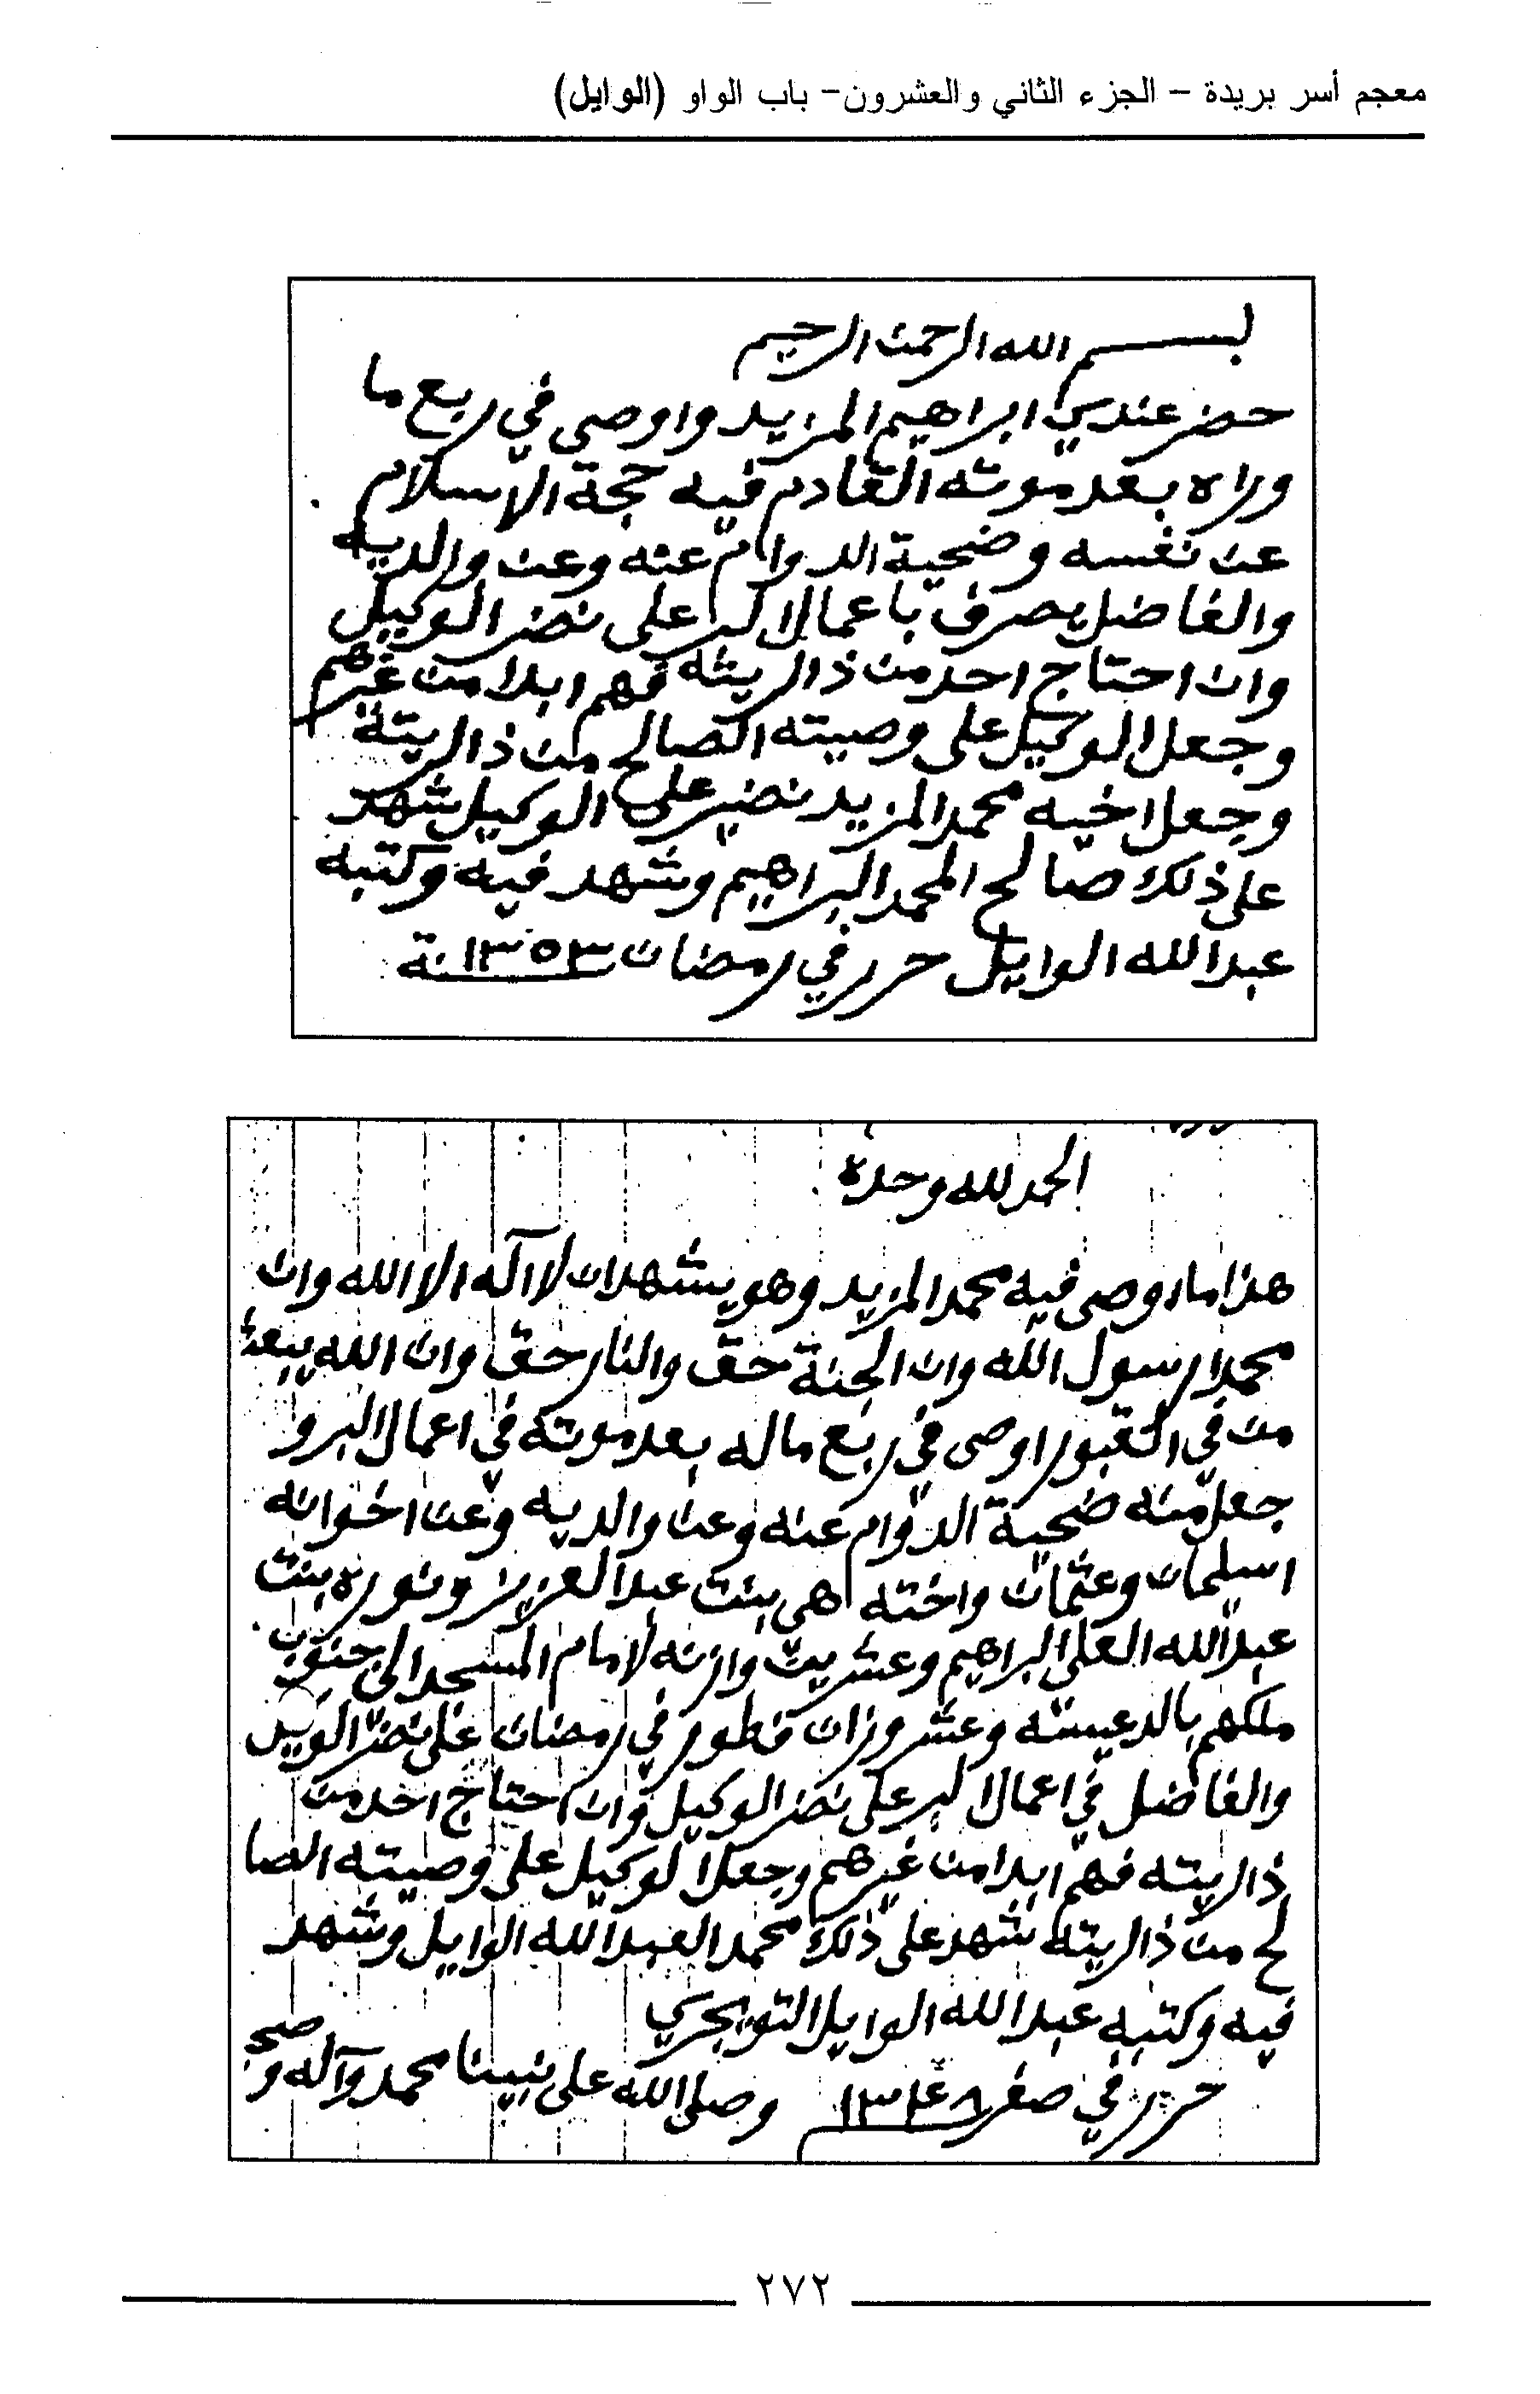 معجم أسر بريدة - الجزء الثاني والعشرون- باب الواو (الوايل)
بسم الله الرحمن الرحيم
حضر عندي ابراهيم المزيد واوصى في ربع ما
وراه بعد موته القادم فيه حجة الاسلام
عن نفسه وضحية الدوام عنه وعن والديه
والفاضل يصرف باعمال البر على نضر الوكيل
وان احتاج احد من ذاريته فهم ابدا من غيرهم
وجعل الوكيل على وصيته الصالح من ذاريته
وجعل اخيه محمد المزيد نضير على الوكيل شهد
على ذلك صالح المحمد البراهيم وشهد فيه وكتبه
عبدالله الوايل حرر في رمضان ١٣٥٣نة
الحمد لله وحده
هذا ما اوصى فيه محمد المزيد وهو يشهد ان لا آله الا الله وان
محمدا رسول الله وان الجنة حق والنار حق وان الله يبعث
من في القبور اوصى في ربع ماله بعد موته في اعمال البر و
جعل منه ضحية الدوام عنه وعن والديه وعن اخوانه
اسليمان وعثمان واخته هي بنت عبدالعزيز ونوره بنت
عبدالله العلي البراهيم وعشرين وازنه لامام المسجد الي جنوب
ملكهم بالدعيسه وعشر وزان فطور في رمضان على نضر الوكيل
والفاضل في اعمال البر على نضر الوكيل وان احتاج احد من
ذاريته فهم ابدا من غيرهم وجعل الوكيل على وصيته الصا
لح من ذاريته شهد على ذلك محمد العبدالله الوايل وشهد
فيه وكتبه عبدالله الوايل التويجري
حرر في صفر ١٣٤٨ وصلى الله على نبينا محمد وآله وصحبه
٢٧٢